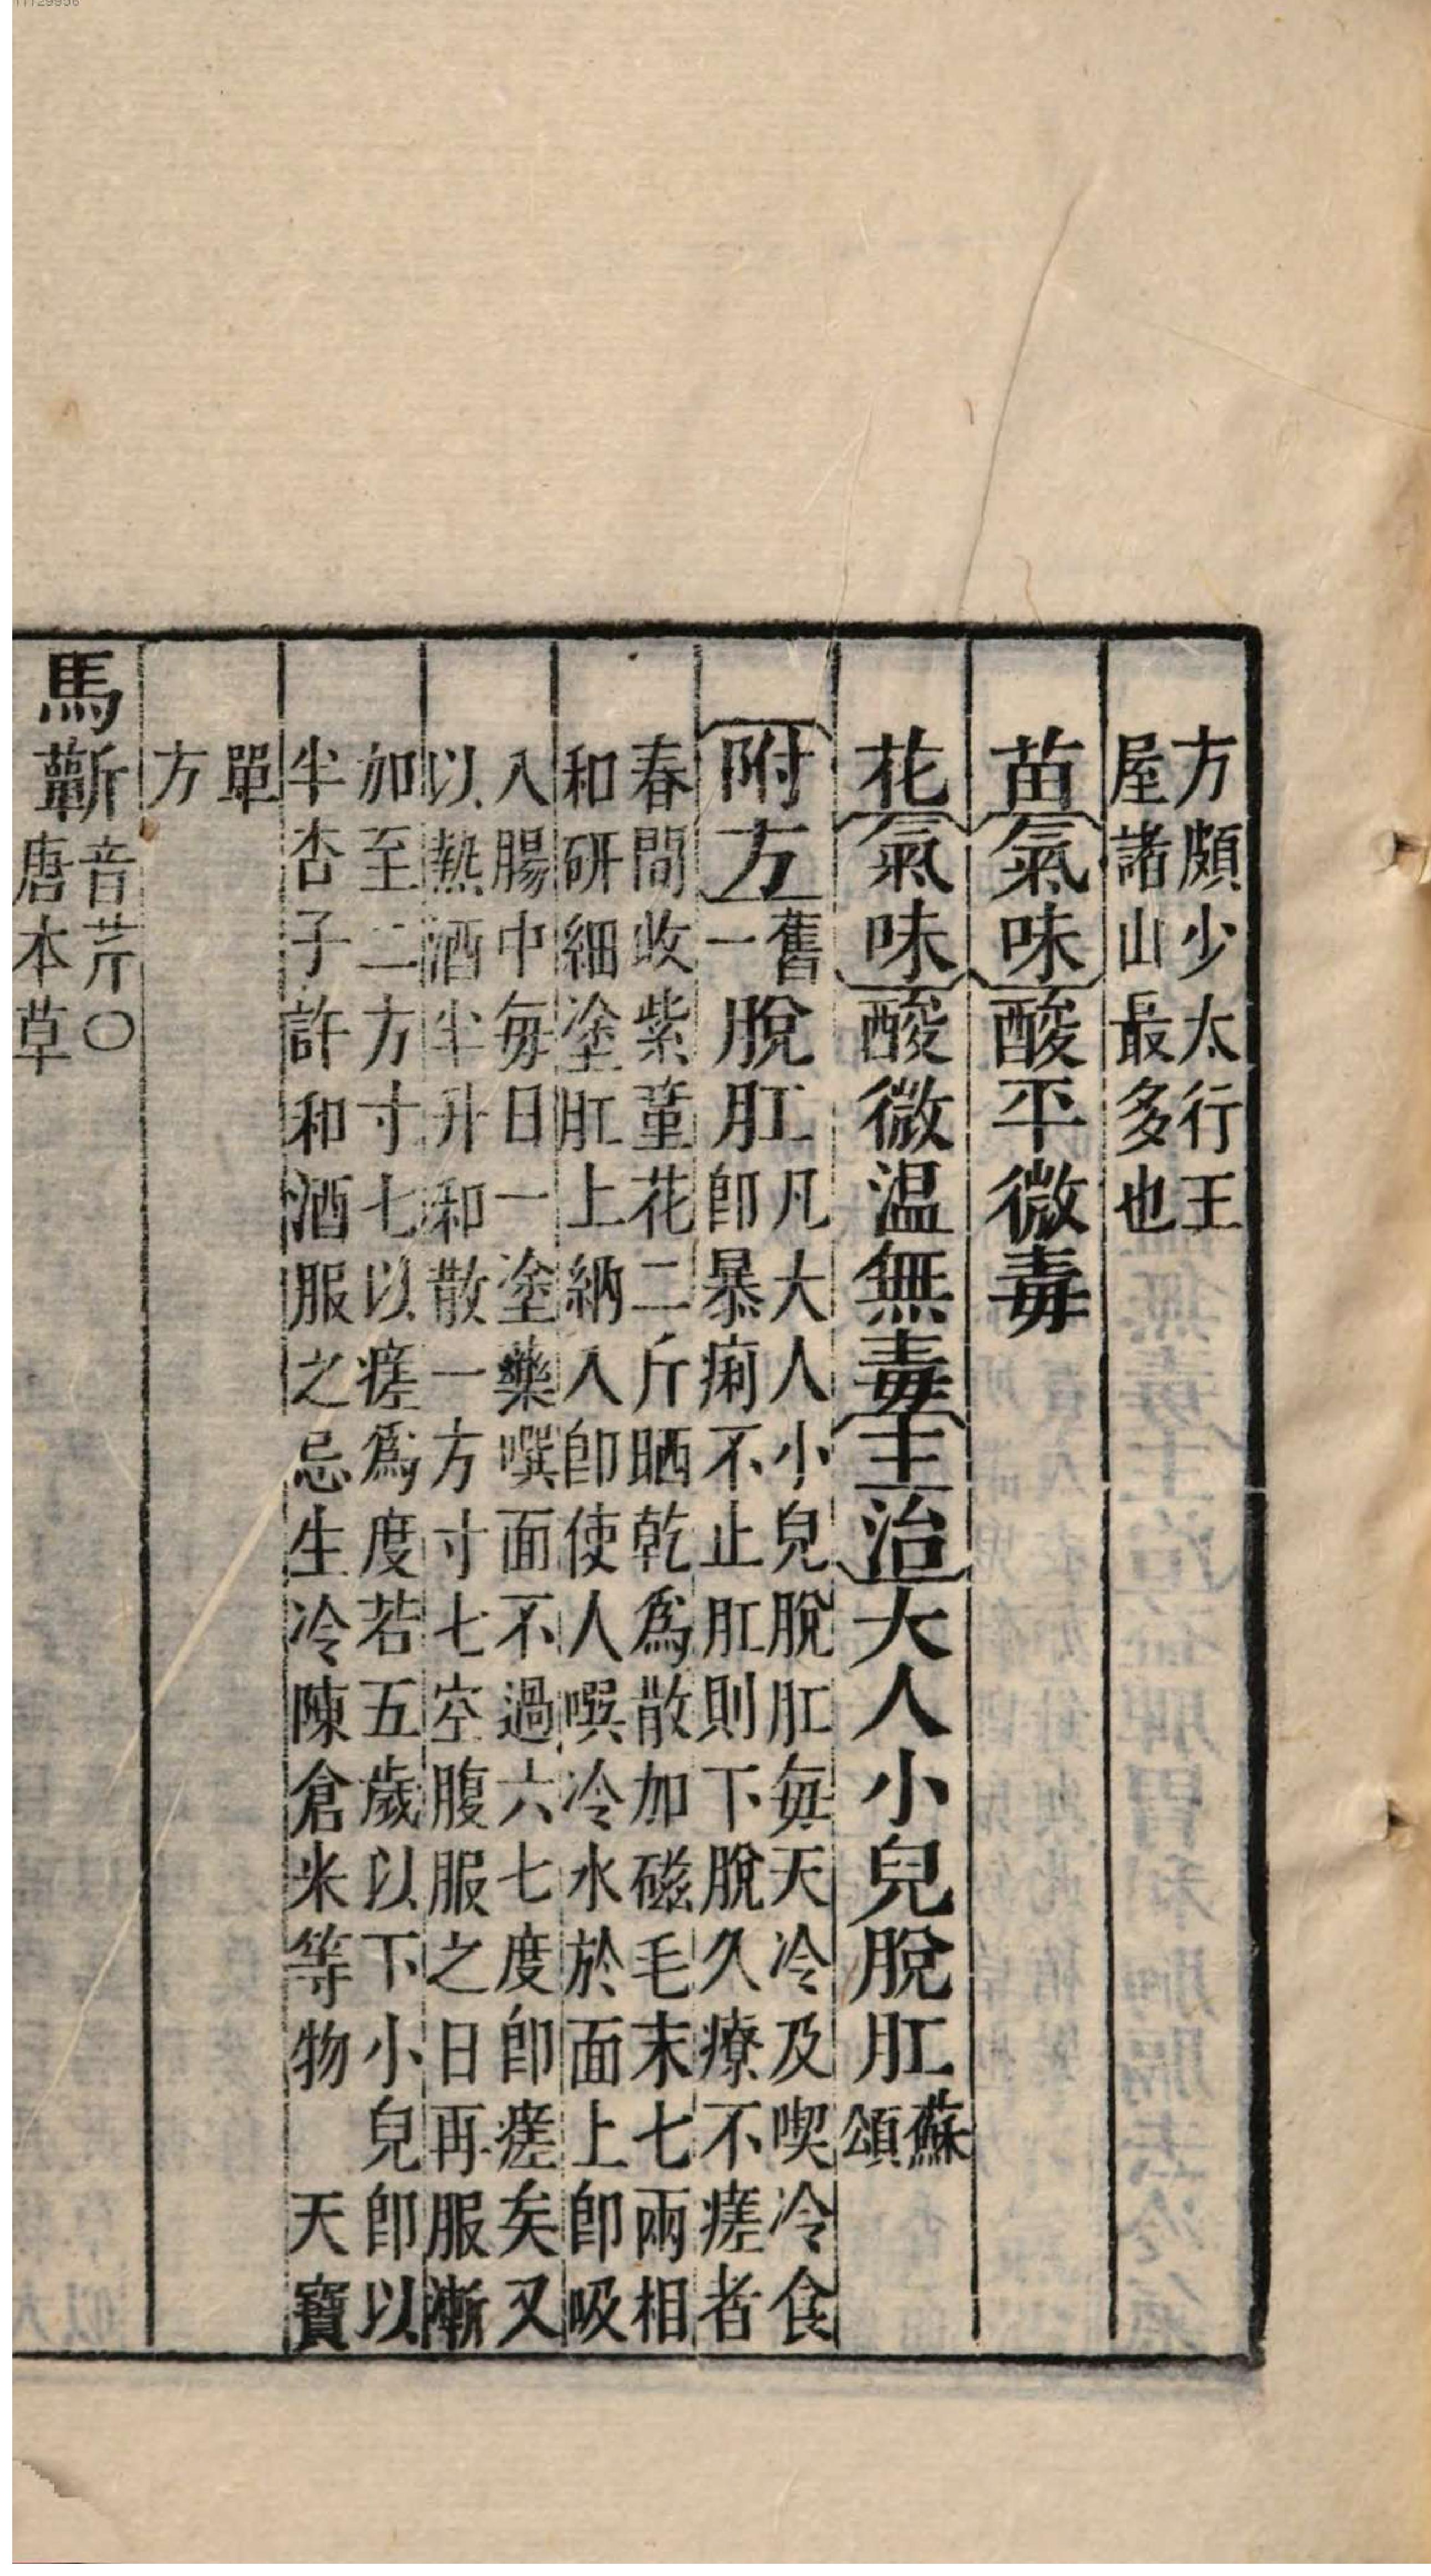 方頗少太行王
屋諸山最多也
苗氣味酸平微毒
花氣味酸微温無毒主治大人小兒脫肛蘇頌
附方舊一脫肛凡大人小兒脫肛每天冷及喫冷食
即暴痢不止肛則下脫久療不瘥者
春間收紫菫花二斤晒乾爲散加磁毛末七兩相
和研細塗肛上納入即使人噀冷水於面上即吸
入腸中每日一塗藥噀面不過六七度即瘥矣又
以熱酒半升和散一方寸七空腹服之日再服漸
加至二方寸七以瘥爲度若五歲以下小兒即以
半杏子許和酒服之忌生冷陳倉米等物 天寶
單
方
馬蘄音芹〇
唐本草